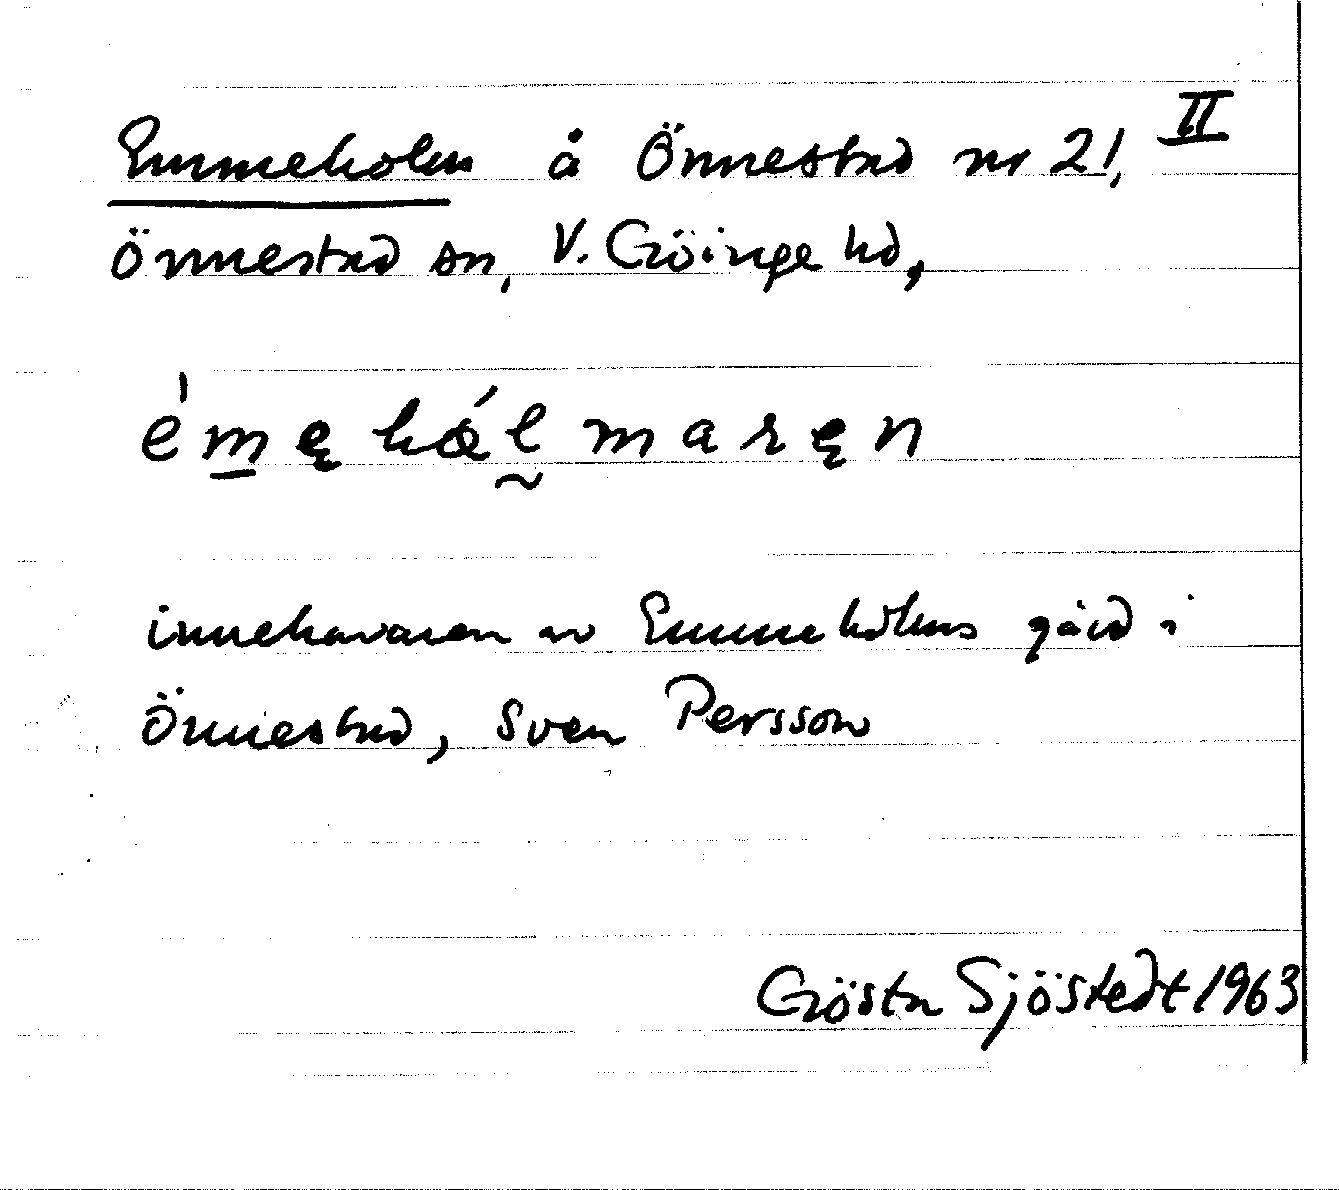 Emmeholm å Önnestad nr 21, II
Önnestad sn, V. Göinge hd,
émęhólmaręn
innehavaren av Emmeholms gård i
Önnestad, Sven Persson
Gösta Sjöstedt 1963